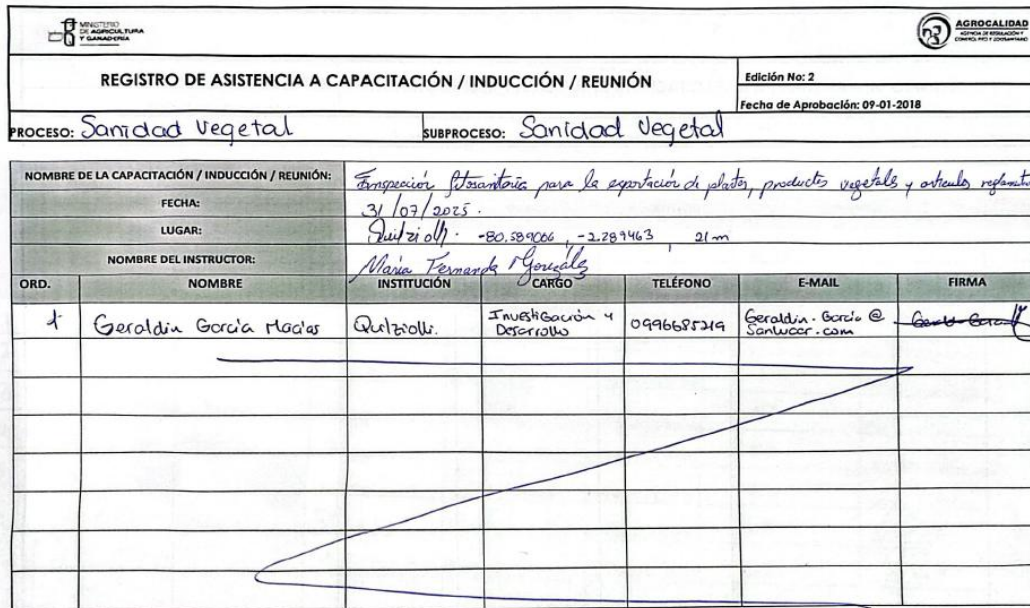 MINISTERIO
DE AGRICULTURA
Y GANADERÍA
AGROCALIDAD
AGENCIA DE REGULACIÓN Y
CONTROL FITO Y ZOOSANITARIO
REGISTRO DE ASISTENCIA A CAPACITACIÓN / INDUCCIÓN / REUNIÓN
Edición No: 2
Fecha de Aprobación: 09-01-2018
PROCESO: Sanidad Vegetal SUBPROCESO: Sanidad Vegetal
NOMBRE DE LA CAPACITACIÓN / INDUCCIÓN / REUNIÓN: Inspección fitosanitaria para la exportación de plantas, productos vegetales y artículos
FECHA: 31/07/2025.
LUGAR: -80.589066, -2.289463 21m
NOMBRE DEL INSTRUCTOR: María Fernanda González
ORD. NOMBRE INSTITUCIÓN CARGO TELÉFONO E-MAIL FIRMA
1 Geraldin García Macías Quilziolli. Investigación y Desarrollo 0996685219 Geraldin.Garcia@Sanlucar.com